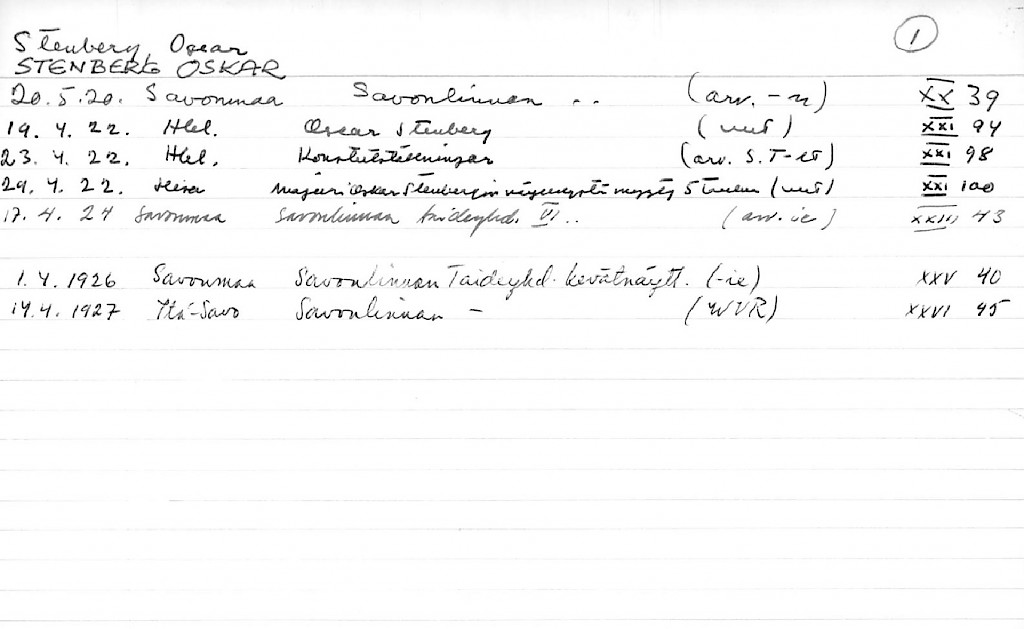 1
Stenberg, Oscar
STENBERG OSKAR
20.5.20. Savonmaa Savonlinnan .. (arv. -n) XX 39
19. 4. 22. Hbl. Oscar Stenberg (uut) XXI 94
23. 4. 22. Hbl. Konstutställningar (arv. S. T-st) XXI 98
29. 4. 22. Oskar Stenbergin (uut) XXI 100
17. 4. 24 Savonmaa Savonlinnan taideyhd. VI .. (arv. ie) XXIII 43
1. 4. 1926 Savonmaa Savonlinnan Taideyhd. kevätnäytt. (-ie) XXV 40
14.4. 1927 Itä-Savo Savonlinnan - (WVR) XXVI 45